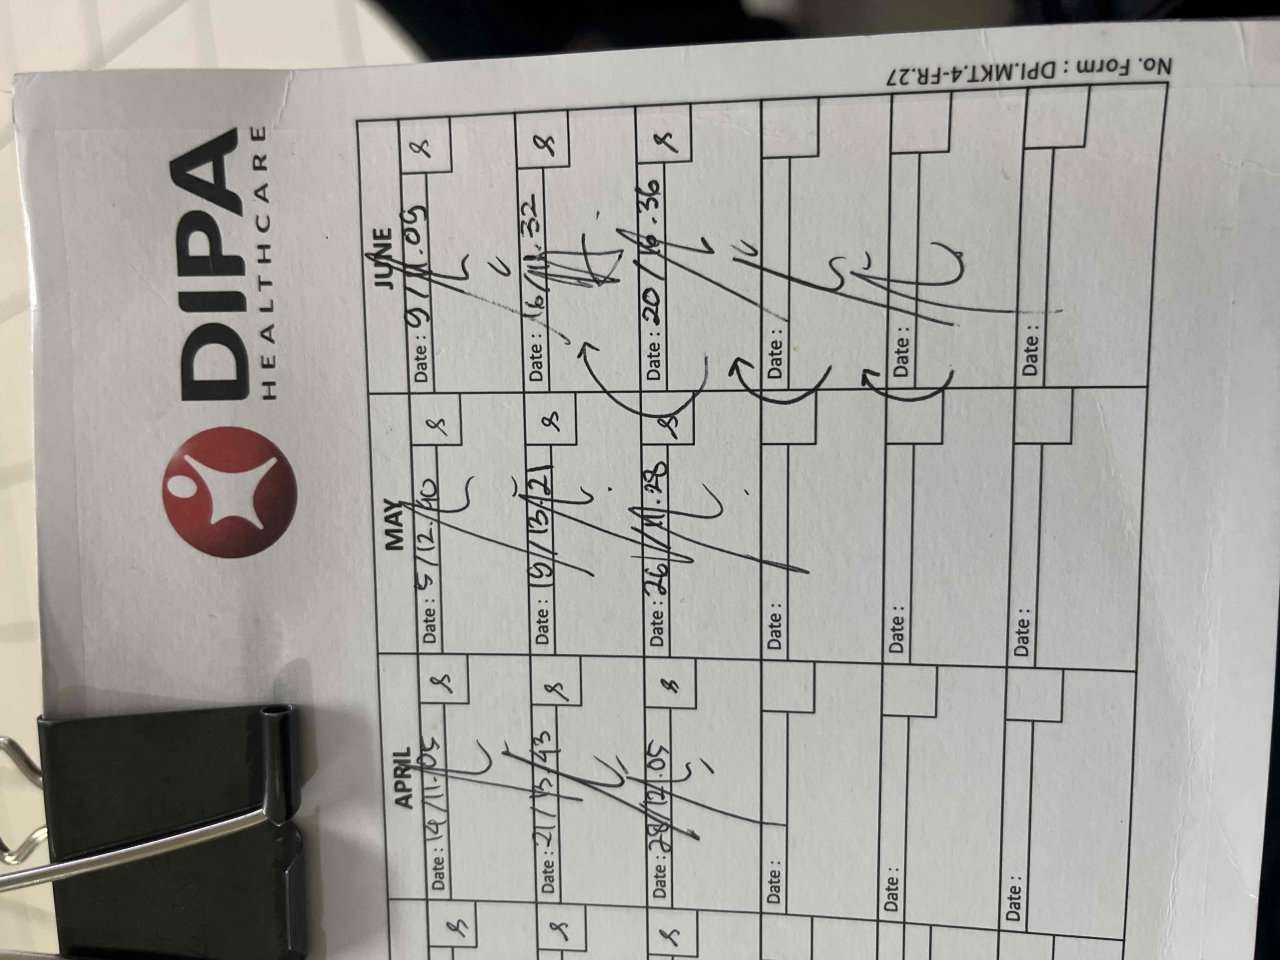 DIPA
HEALTHCARE
APRIL
MAY
JUNE
Date : 14/11.05
Date : 5/12.40
Date : 9/11.09
Date : 21/13.43
Date : 19/13.21
Date : 16/11.32
Date : 28/12.05
Date : 26/11.28
Date : 20/16.36
Date :
Date :
Date :
Date :
Date :
Date :
Date :
Date :
Date :
No. Form : DPI.MKT.4-FR.27